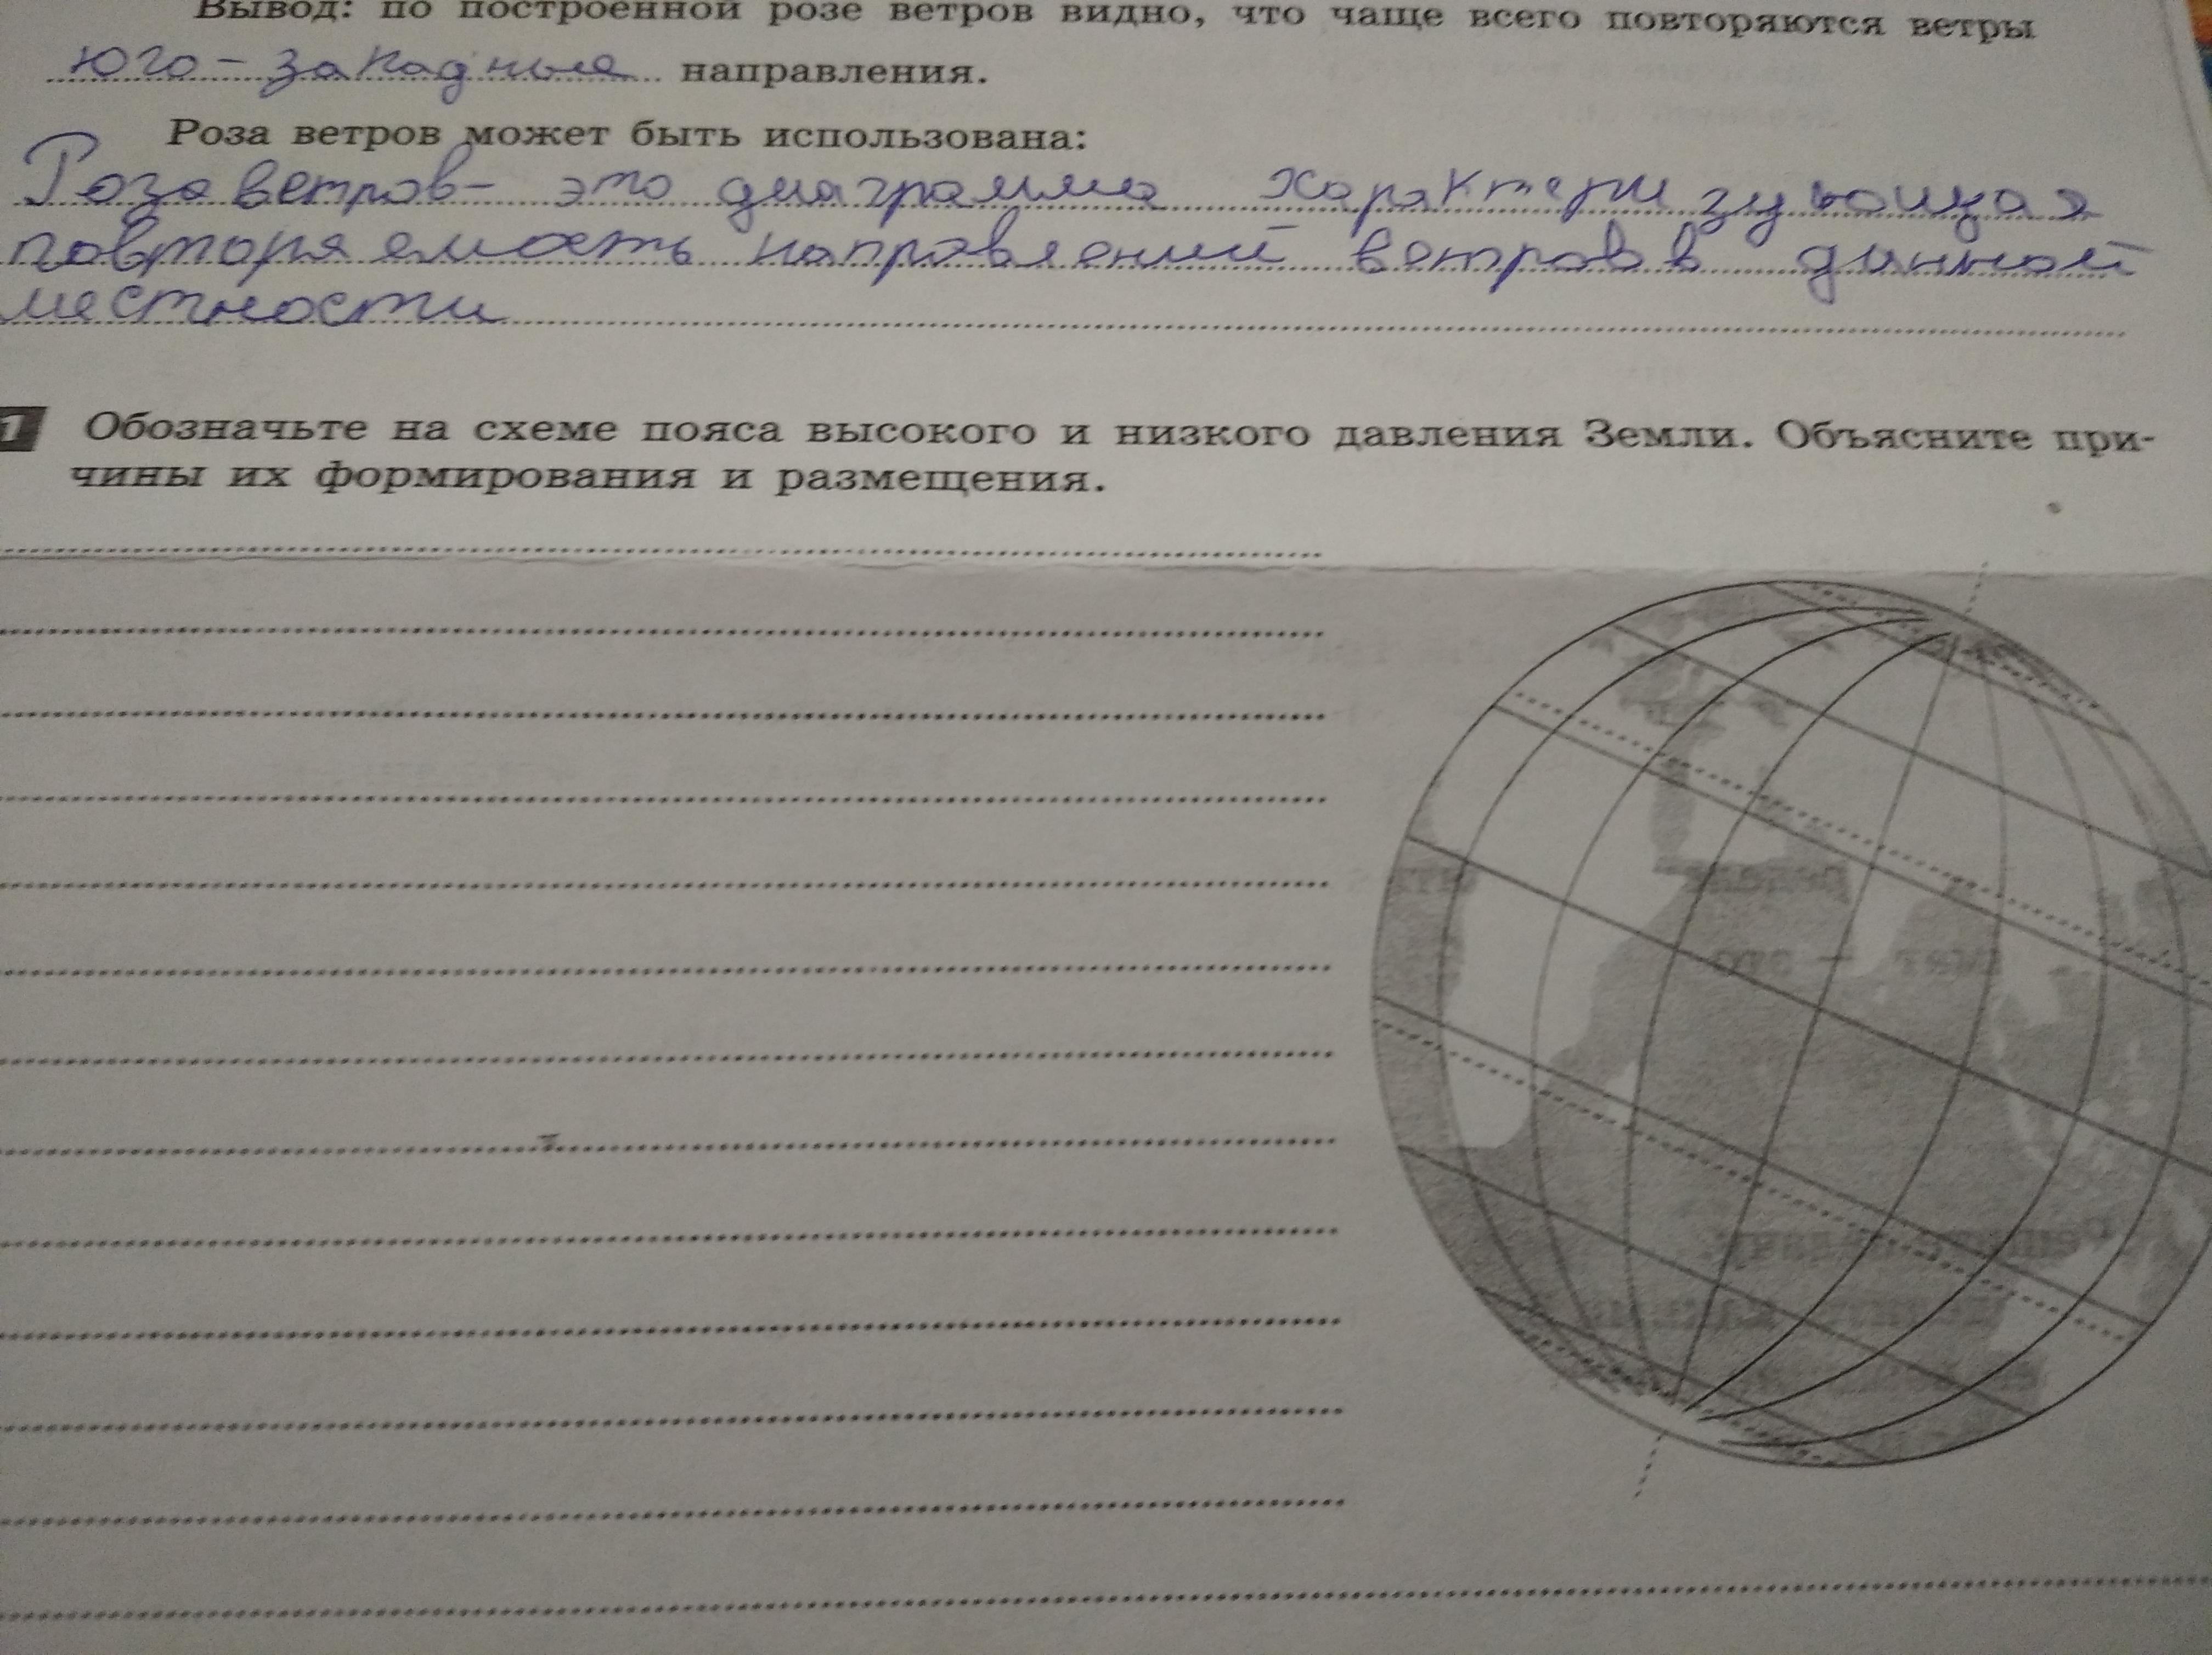 Вывод: по построенной розе ветров видно, что чаще всего повторяются ветры
юго-западные направления.
Роза ветров может быть использована:
Роза ветров- это диаграмма характеризующая
повторяемость направлений ветров в данной
местности
1 Обозначьте на схеме пояса высокого и низкого давления Земли. Объясните при-
чины их формирования и размещения.